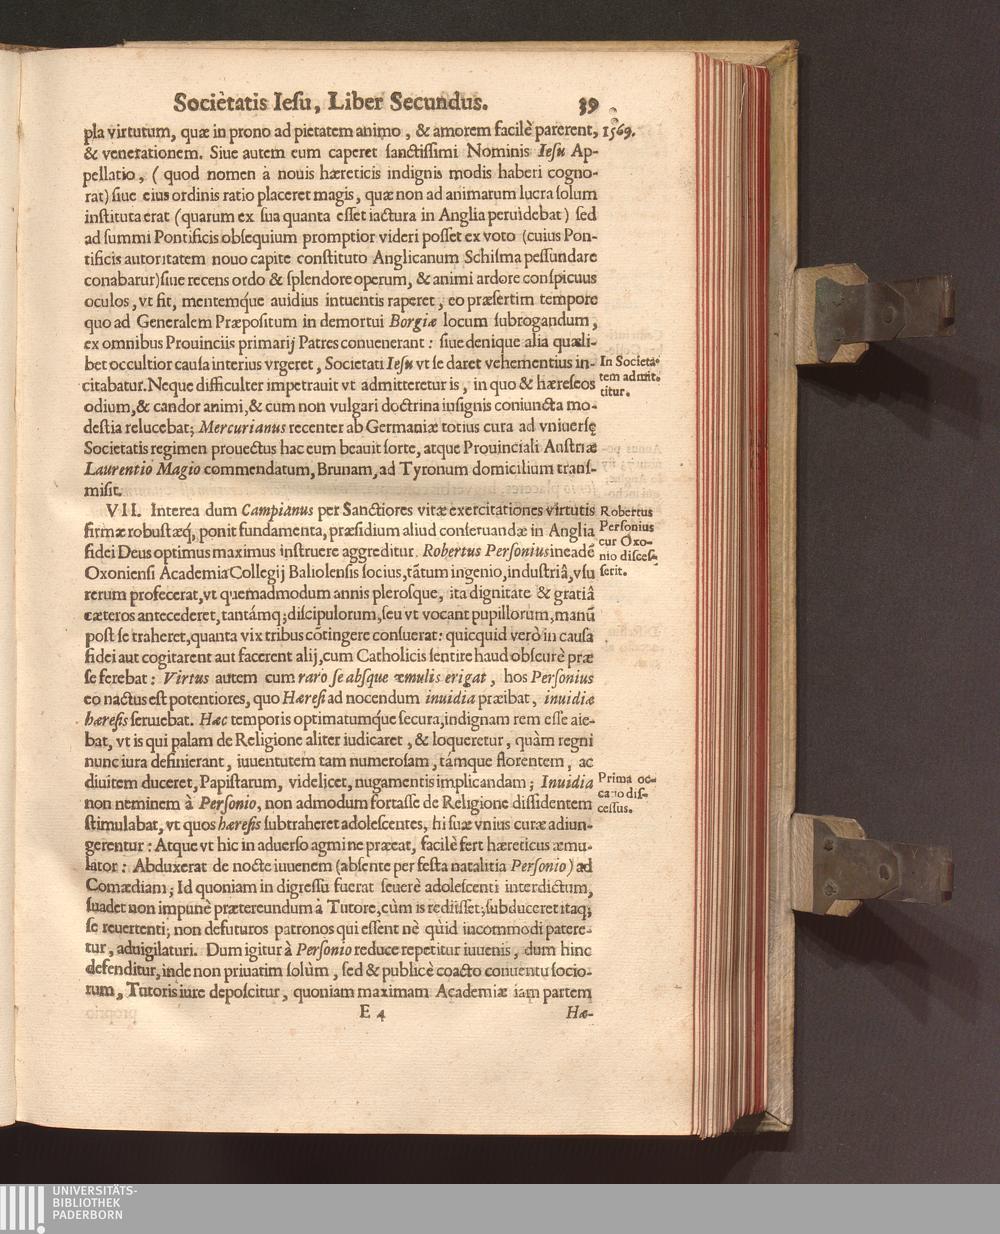 Societatis Iesu, Liber Secundus. 39
pla virtutum, quæ in prono ad pietatem animo, & amorem facilè parerent, 1569.
& venerationem. Siue autem eum caperet sanctissimi Nominis Iesu Ap-
pellatio, ( quod nomen à nouis hæreticis indignis modis haberi cogno-
rat) siue eius ordinis ratio placeret magis, quæ non ad animarum lucra solum
instituta erat (quarum ex sua quanta esset iactura in Anglia peruidebat) sed
ad summi Pontificis obsequium promptior videri posset ex voto (cuius Pon-
tificis autoritatem nouo capite constituto Anglicanum Schisma pessundare
conabatur) siue recens ordo & splendore operum, & animi ardore conspicuus
oculos, vt fit, mentemq́ue auidius intuentis raperet, eo præsertim tempore
quo ad Generalem Præpositum in demortui Borgiæ locum subrogandum,
ex omnibus Prouinciis primarij Patres conuenerant: siue denique alia quæli-
bet occultior causa interius vrgeret, Societati Iesu vt se daret vehementius in-
citabatur. Neque difficulter impetrauit vt admitteretur is, in quo & hæreseos
odium, & candor animi, & cum non vulgari doctrina insignis coniuncta mo-
destia relucebat; Mercurianus recenter ab Germaniæ totius cura ad vniuersę
Societatis regimen prouectus hac eum beauit sorte, atque Prouinciali Austriæ
Laurentio Magio commendatum, Brunam, ad Tyronum domicilium trans-
misit.
In Societa-
tem admit-
titur.
VII. Interea dum Campianus per Sanctiores vitæ exercitationes virtutis
firmæ robustæq́, ponit fundamenta, præsidium aliud conseruandæ in Anglia
fidei Deus optimus maximus instruere aggreditur. Robertus Personius in eadē
Oxoniensi Academia Collegij Baliolensis socius, tātum ingenio, industriâ, vsu
rerum profecerat, vt quemadmodum annis plerosque, ita dignitate & gratiâ
cæteros antecederet, tantámq; discipulorum, seu vt vocant pupillorum, manū
post se traheret, quanta vix tribus cōtingere consuerat: quicquid verò in causa
fidei aut cogitarent aut facerent alij, cum Catholicis sentire haud obscurè præ
se ferebat: Virtus autem cum raro se absque æmulis erigat, hos Personius
eo nactus est potentiores, quo Hæresi ad nocendum inuidia præibat, inuidiæ
hæresis seruiebat. Hæc temporis optimatumque secura, indignam rem esse aie-
bat, vt is qui palam de Religione aliter iudicaret, & loqueretur, quàm regni
nunc iura definierant, iuuentutem tam numerosam, támque florentem, ac
diuitem duceret, Papistarum, videlicet, nugamentis implicandam; Inuidia
non neminem à Personio, non admodum fortasse de Religione dissidentem
stimulabat, vt quos hæresis subtraheret adolescentes, hi suæ vnius curæ adiun-
gerentur: Atque vt hic in aduerso agmine præeat, facilè fert hæreticus æmu-
lator: Abduxerat de nocte iuuenem (absente per festa natalitia Personio) ad
Comædiam; Id quoniam in digressu fuerat seuerè adolescenti interdictum,
suadet non impunè prætereundum à Tutore, cùm is rediisset; subduceret itaq;
se reuertenti; non defuturos patronos qui essent nè quid incommodi patere-
tur, aduigilaturi. Dum igitur à Personio reduce repetitur iuuenis, dum hinc
defenditur, inde non priuatim solùm, sed & publicè coacto conuentu socio-
rum, Tutoris iure deposcitur, quoniam maximam Academiæ iam partem
Robertus
Personius
cur Oxo-
nio disces-
serit.
Prima oc-
casio dis-
cessus.
E 4 Hæ-
UNIVERSITÄTS-
BIBLIOTHEK
PADERBORN